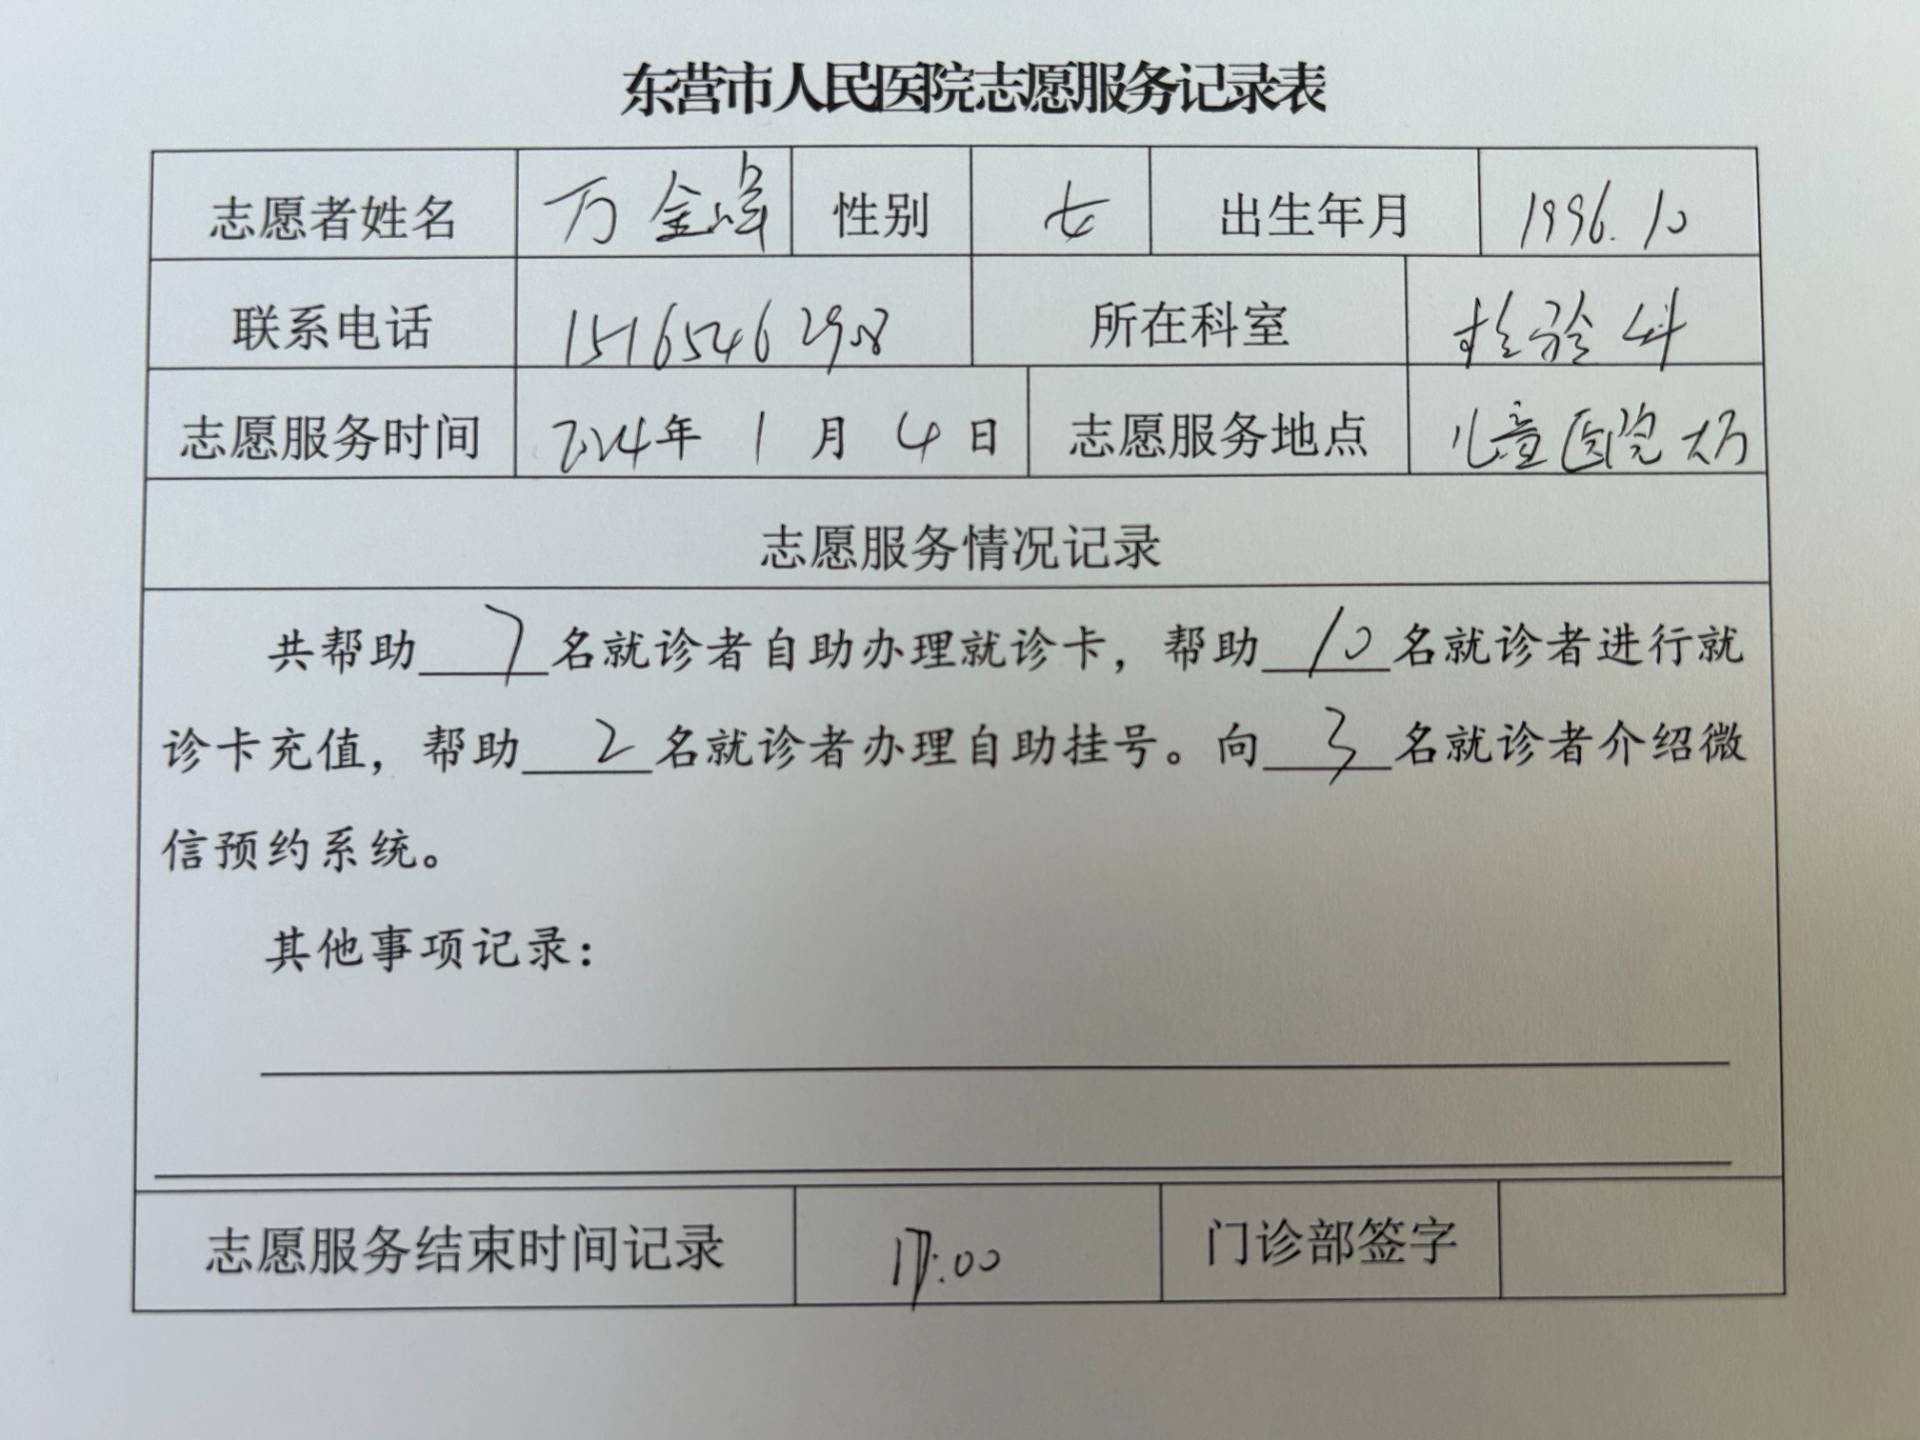 东营市人民医院志愿服务记录表
志愿者姓名 万金 性别 女 出生年月 1996.10
联系电话 15165462908 所在科室 检验科
志愿服务时间 2024年 1 月 4 日 志愿服务地点 儿童医院大厅
志愿服务情况记录
共帮助 7 名就诊者自助办理就诊卡，帮助 10 名就诊者进行就
诊卡充值，帮助 2 名就诊者办理自助挂号。向 3 名就诊者介绍微
信预约系统。
其他事项记录：
志愿服务结束时间记录 17:00 门诊部签字